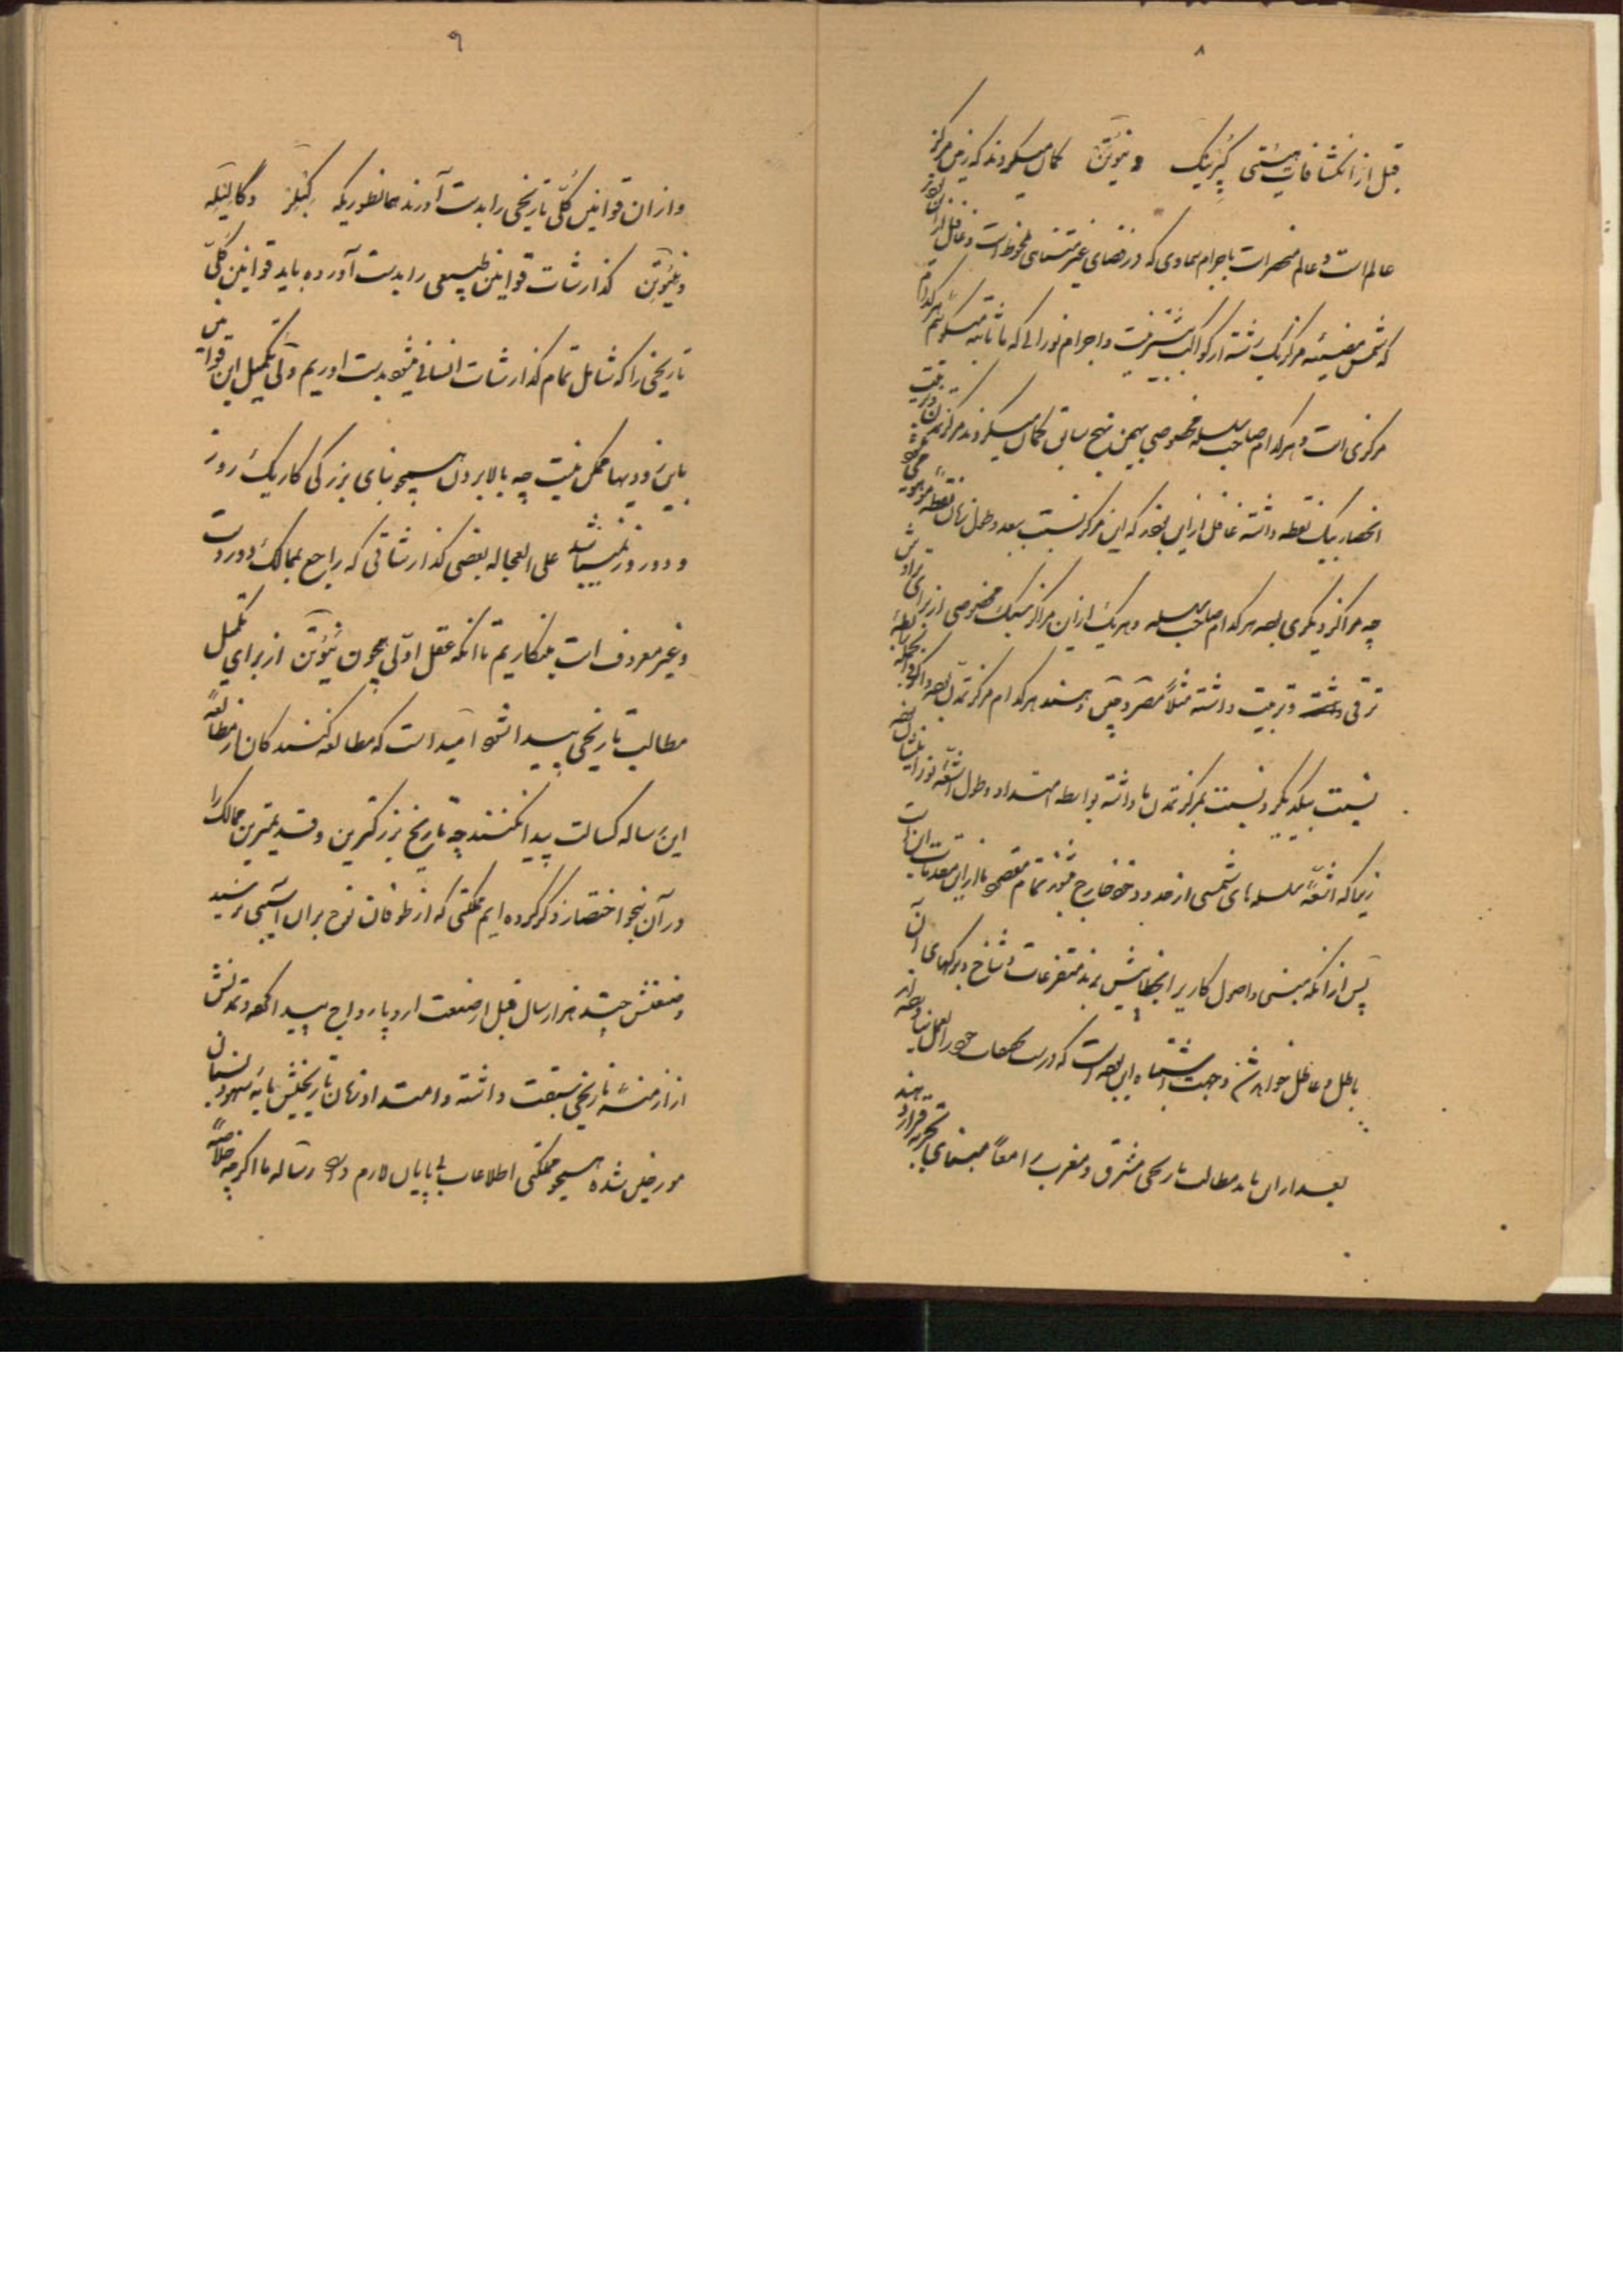 ۸
قبل از انکشافات هیئتی کپرنیک و نیوتن گمان میکردند که زمین مرکز
عالم است و عالم منحصر است باجرام سماوی که در فضای غیر متناهی ملحوظ است و غافل از آن بودند
که شمس مضیئه مرکز یک رشته از کواکب بیش نیست و اجرام نورانی که ما ثابته میگوئیم هر کدام
مرکزی است و هر کدام صاحب سلسله مخصوصی بهمین نهج سابق گمان میکردند مرکز تمدن و تربیت
انحصار بیک نقطه داشته غافل از این بودند که این مرکز نسبت ببعد و طول زمان نقطه موهومی
چه مراکز دیگری بوده هر کدام صاحب سلسله و هر یک از این مراکز سبک مخصوصی از برای
ترقی و تربیت داشته مثلاً مصر و چین و هند هر کدام مرکز تمدن بوده
نسبت بیکدیگر و نسبت بمرکز تمدن ما داشته بواسطه امتداد و طول اشعه نور
زیرا که اشعه سلسله های شمسی از حدود خود خارج نشود تمام مقصود ما از این مقدمات این است
پس از آنکه مبنی و اصول کار بر انحطاطش برند متفرعات و شاخ و برگهای آن
باطل و عاطل خواهد شد و جهت اشتباه این بوده است که
بعد از این باید مطالب تاریخی مشرق و مغرب را معاً مبنای تجربه قرار دهند
۹
و از آن قوانین کلی تاریخی را بدست آورند همانطوریکه کپلر و گالیله
و نیوتن گذارشات قوانین طبیعی را بدست آورده باید قوانین کلی
تاریخی را که شامل تمام گذارشات انسانی میشود بدست اوریم ولی تکمیل این قوانین
باین زودیها ممکن نیست چه بالا بردن همچو بنای بزرگی کار یک روز
و دو روز نمیباشد علی العجاله بعضی گذارشاتی که راجع بممالک دور دست
و غیر معروف است مینگاریم تا آنکه عقل اولی همچون نیوتن از برای تکمیل
مطالب تاریخی پیدا شود امید است که مطالعه کنندگان از مطالعه
این رساله کسالت پیدا نکنند چه تاریخ بزرگترین و قدیمترین ممالک را
در آن بنحو اختصار ذکر کرده ایم مملکتی که از طوفان نوح بر آن آسیبی نرسید
و صنعتش چند هزار سال قبل از صنعت اروپا رواج پیدا کرده و تمدنش
از ازمنه تاریخی سبقت داشته و امتداد زمان تاریخیش مایه سهو و نسیان
مورخین شده همچو مملکتی اطلاعات بی پایان لازم دارد رساله ما اگر چه خلاصه